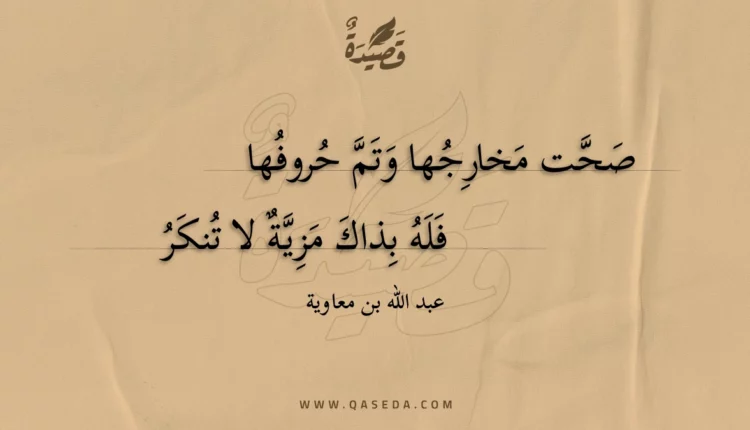 قَصِيدَةٌ
صَحَّت مَخارِجُها وَتَمَّ حُروفُها
فَلَهُ بِذاكَ مَزِيَّةٌ لا تُنكَرُ
عبد الله بن معاوية
WWW.QASEDA.COM